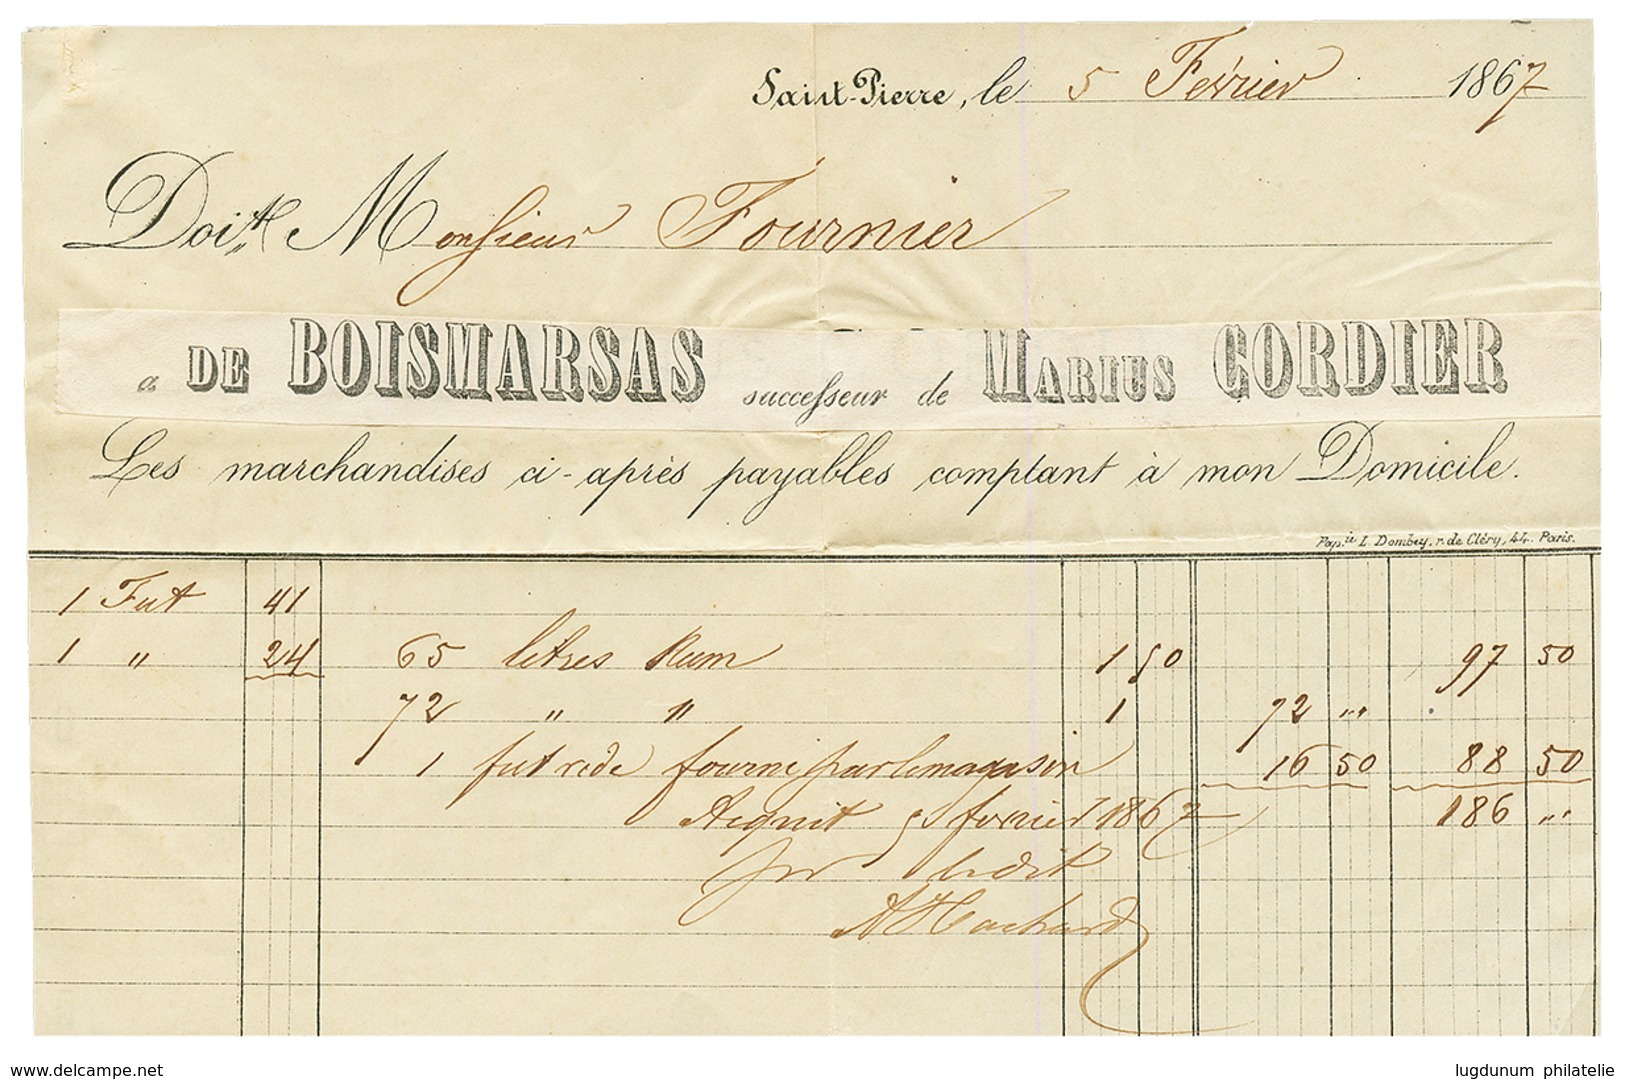 Saint-Pierre, le 5 Février 1867
Doit Monsieur Fournier
a DE BOISMARSAS successeur de MARIUS CORDIER
Les marchandises ci-après payables comptant à mon Domicile.
Pap.ie L. Dombey, r. de Cléry, 44. Paris.
1 Fut 41
1 " 24 65 litres Rum 1 50 97 50
72 " " 1 72 "
1 fut vide fourni par le magasin 16 50 88 50
Acquit 5 fevrier 1867 186 "
pr
delcampe.net
lugdunum philatelie